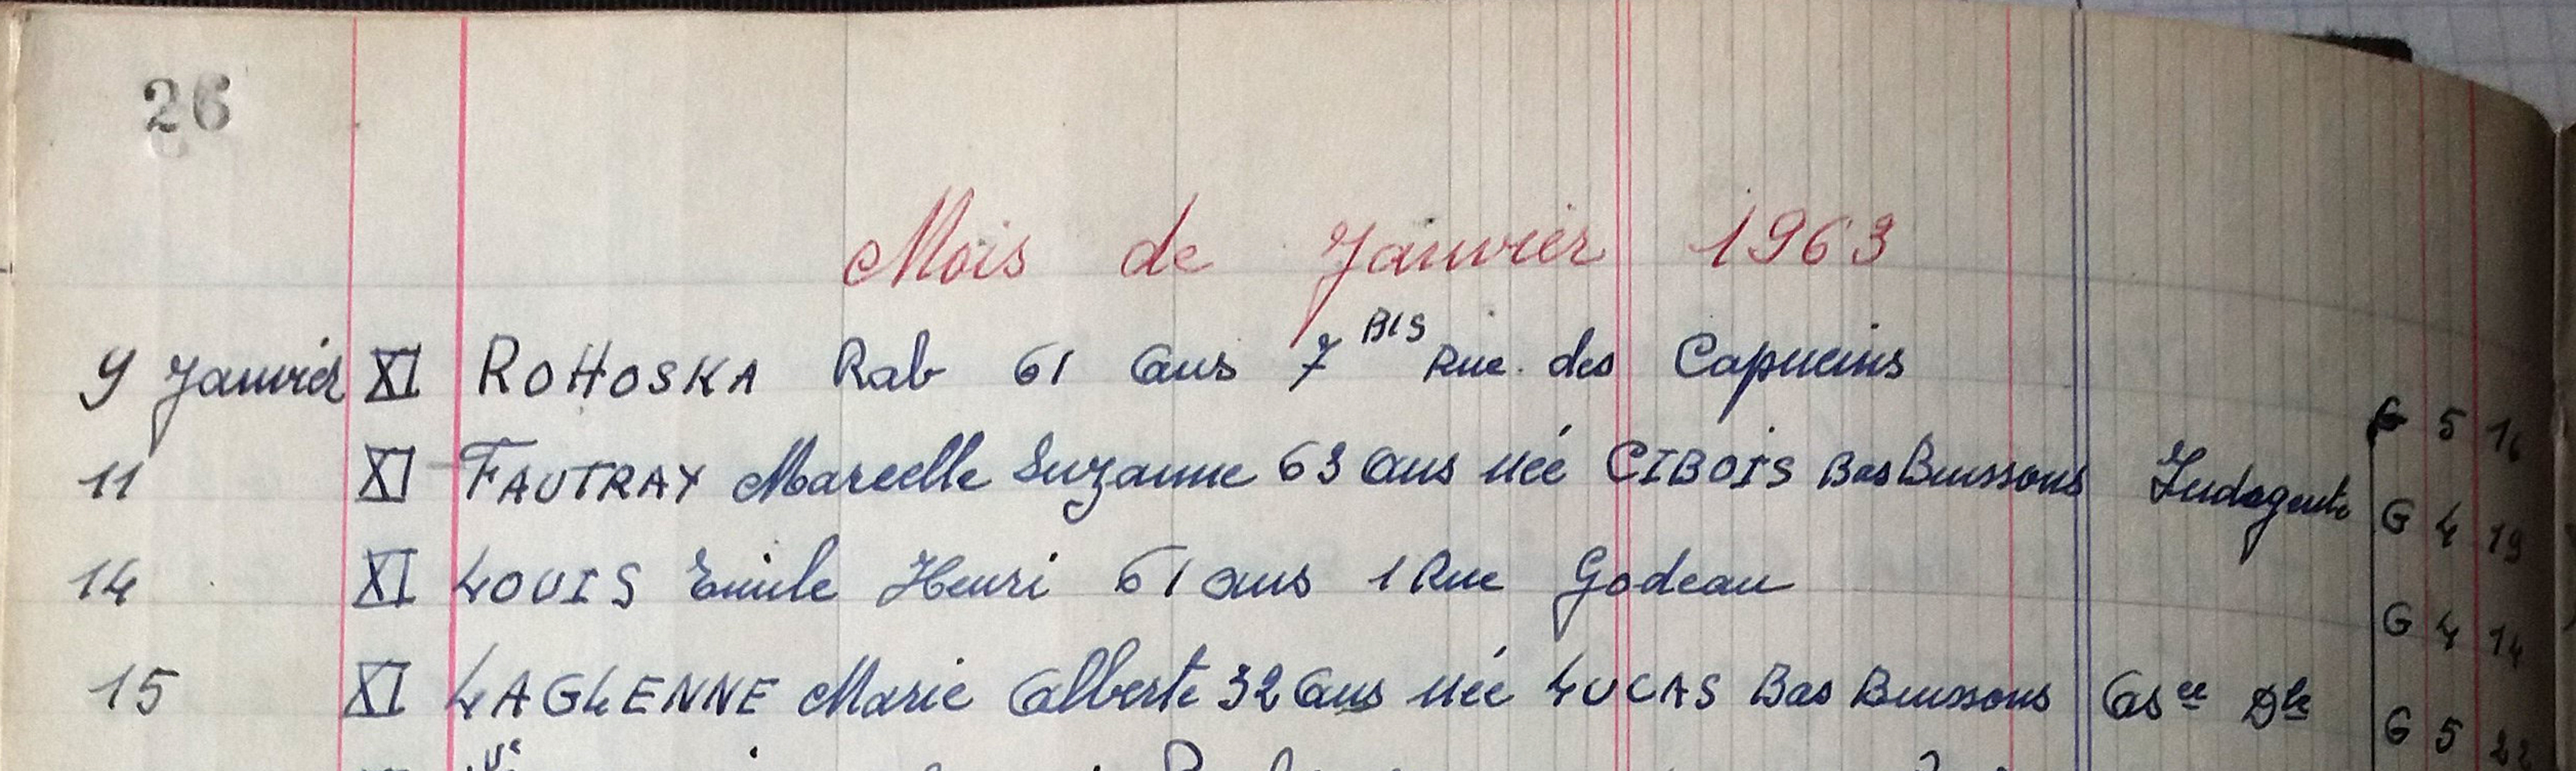 26
Mois de Janvier 1963
9 Janvier XI ROHOSKA Rab 61 ans 7 BIS Rue des Capucins G 5 16
11 XI FAUTRAY Marcelle Suzanne 63 ans née CIBOIS Bas Buissons Indigente G 4 19
14 XI LOUIS Emile Henri 61 ans 1 Rue Godeau G 4 14
15 XI LAGLENNE Marie Alberte 32 ans née LUCAS Bas Buissons Asce Dle G 5 22